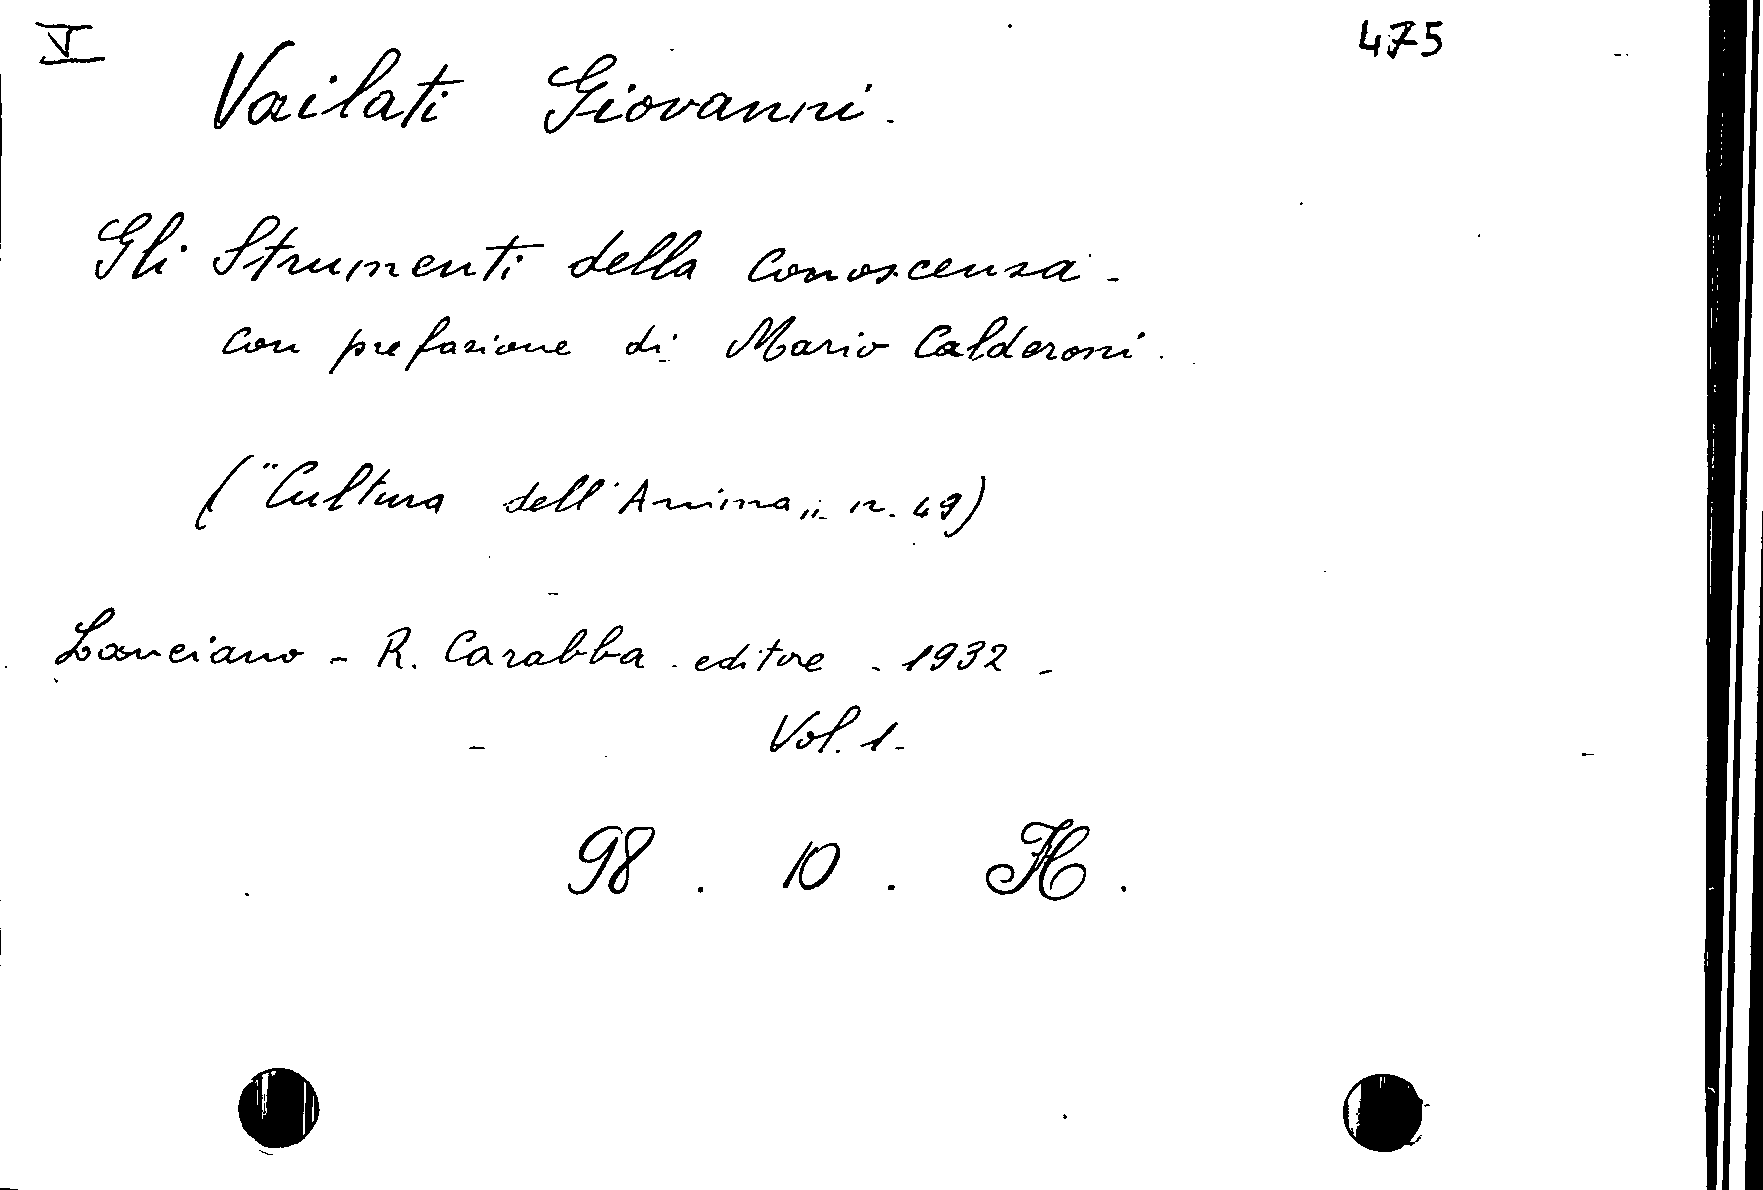 V 475
Vailati Giovanni.
Gli Strumenti della Conoscenza -
con prefazione di Mario Calderoni.
("Cultura dell'Anima„ n. 49)
Lanciano - R. Carabba editore - 1932 -
Vol. 1-
98 . 10 . H .